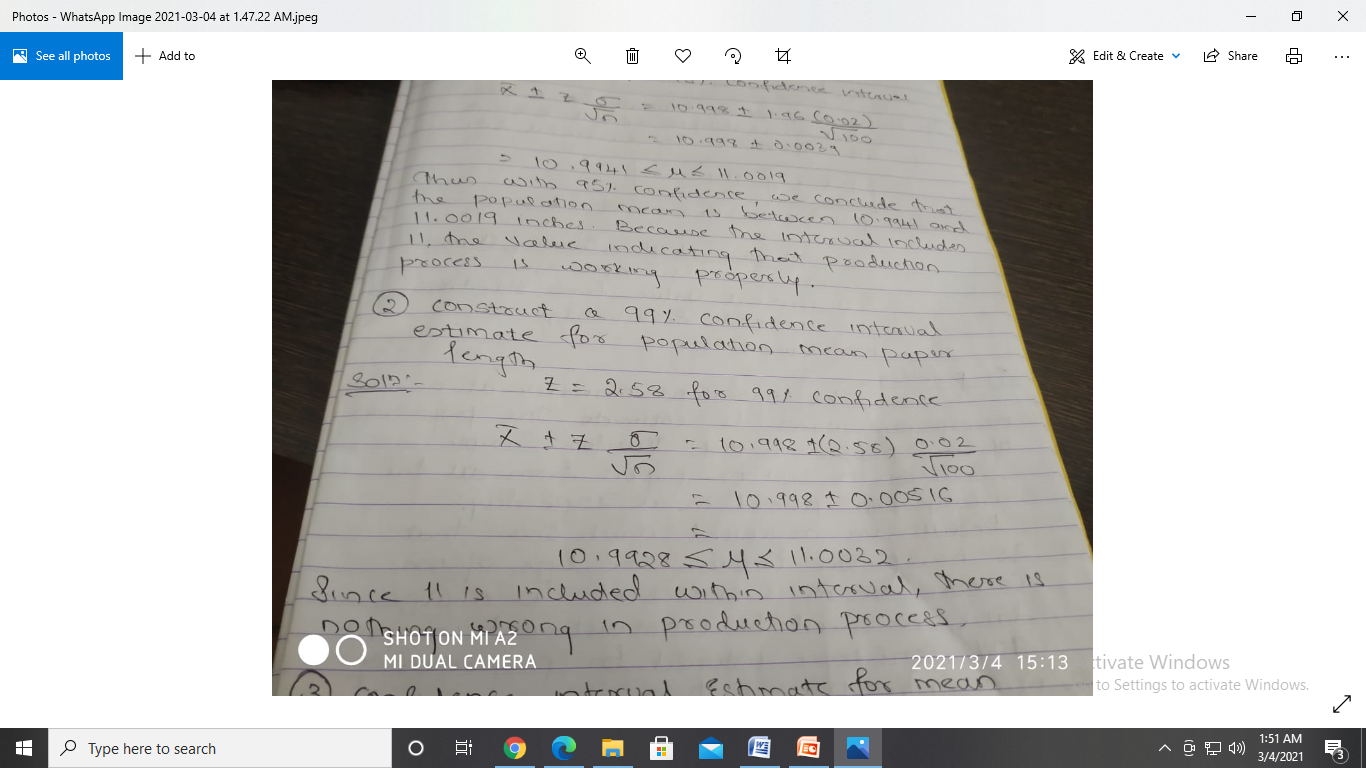 Photos - WhatsApp Image 2021-03-04 at 1.47.22 AM.jpeg
See all photos
Add to
Edit & Create
Share
confidence interval
x̄ ± z σ/√n = 10.998 ± 1.96 (0.02)/√100
= 10.998 ± 0.0039
= 10.9941 ≤ μ ≤ 11.0019
Thus with 95% confidence, we conclude that
the population mean is between 10.9941 and
11.0019 inches. Because the interval includes
11, the value indicating that production
process is working properly.
② construct a 99% confidence interval
estimate for population mean paper
length
Soln:-
z = 2.58 for 99% confidence
x̄ ± z σ/√n = 10.998 ±(2.58) 0.02/√100
= 10.998 ± 0.00516
=
10.9928 ≤ μ ≤ 11.0032.
Since 11 is included within interval, there is
nothing wrong in production process.
③ interval Estimate for mean
SHOT ON MI A2
MI DUAL CAMERA
2021/3/4 15:13
tivate Windows
to Settings to activate Windows.
Type here to search
1:51 AM
3/4/2021
3